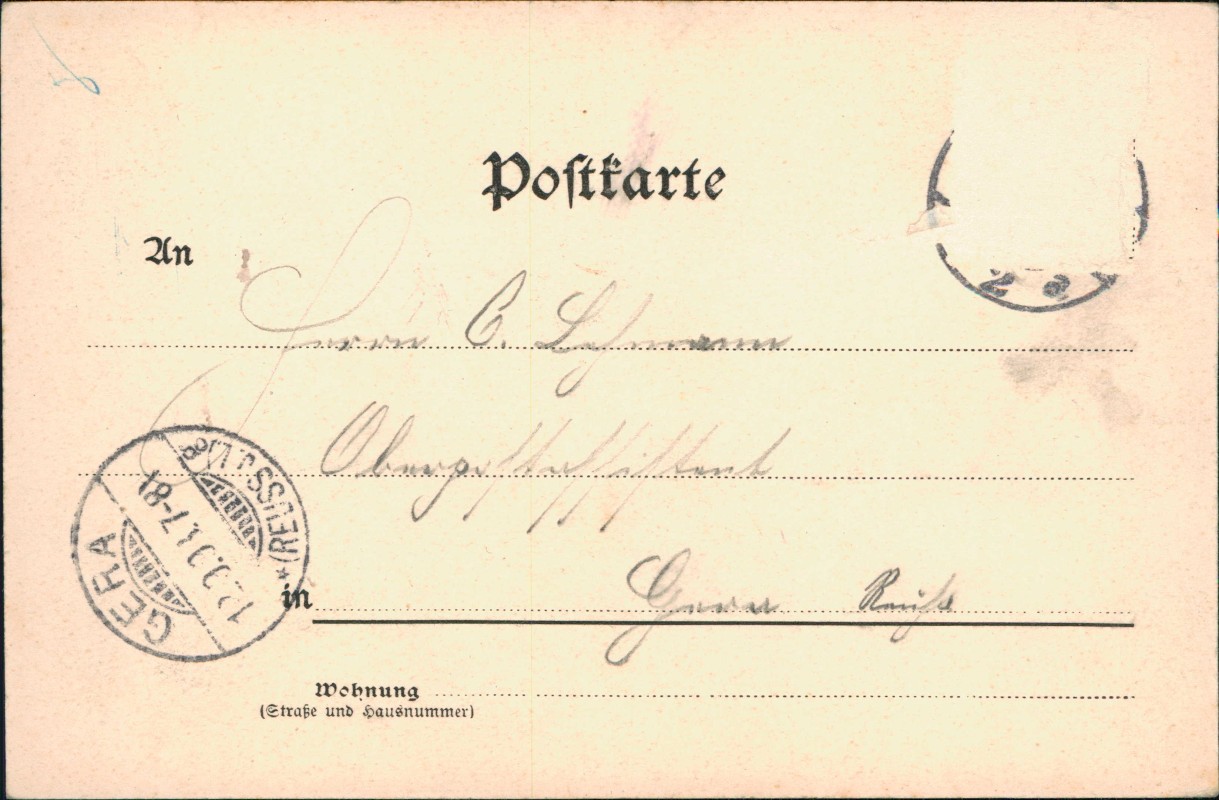 Postkarte
An
Herrn C. Lehmann
Oberpostassistent
in Gera Reuss
Wohnung
(Straße und Hausnummer)
GERA
*(REUSS J. L.)
7-8
2 a